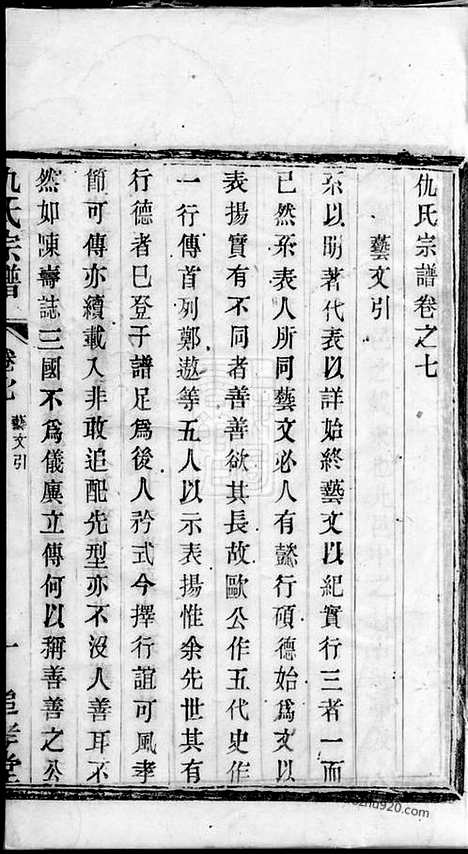 仇氏宗譜卷之七
藝文引
系以明著代表以詳始終藝文以紀實行三者一而
已然系表人所同藝文必人有懿行碩德始爲文以
表揚實有不同者善善欲其長故歐公作五代史作
一行傳首列鄭遨等五人以示表揚惟余先世其有
行德者已登于譜足爲後人矜式今擇行誼可風孝
節可傳亦續載入非敢追配先型亦不沒人善耳不
然如陳壽誌三國不爲儀廙立傳何以稱善善之公
仇氏宗譜
卷七
藝文引
一
追孝堂